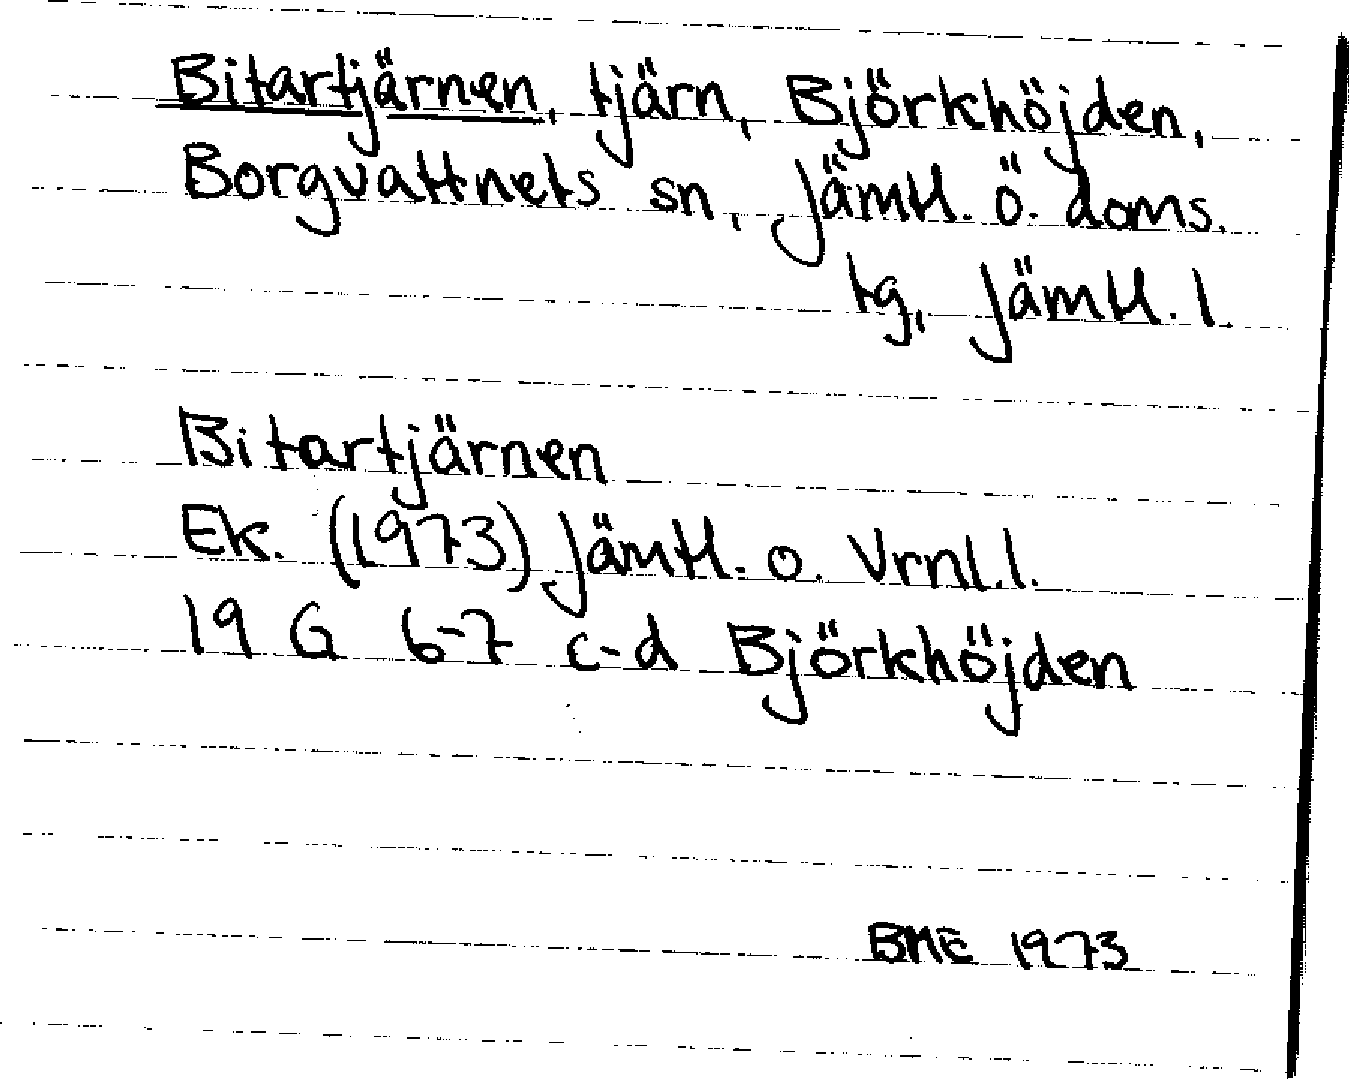 Bitartjärnen, tjärn, Björkhöjden,
Borgvattnets sn, Jämtl. ö. doms.
tg, Jämtl. l.
Bitartjärnen
Ek. (1973) Jämtl. o. Vrnl.l.
19 G 6-7 c-d Björkhöjden
BME 1973